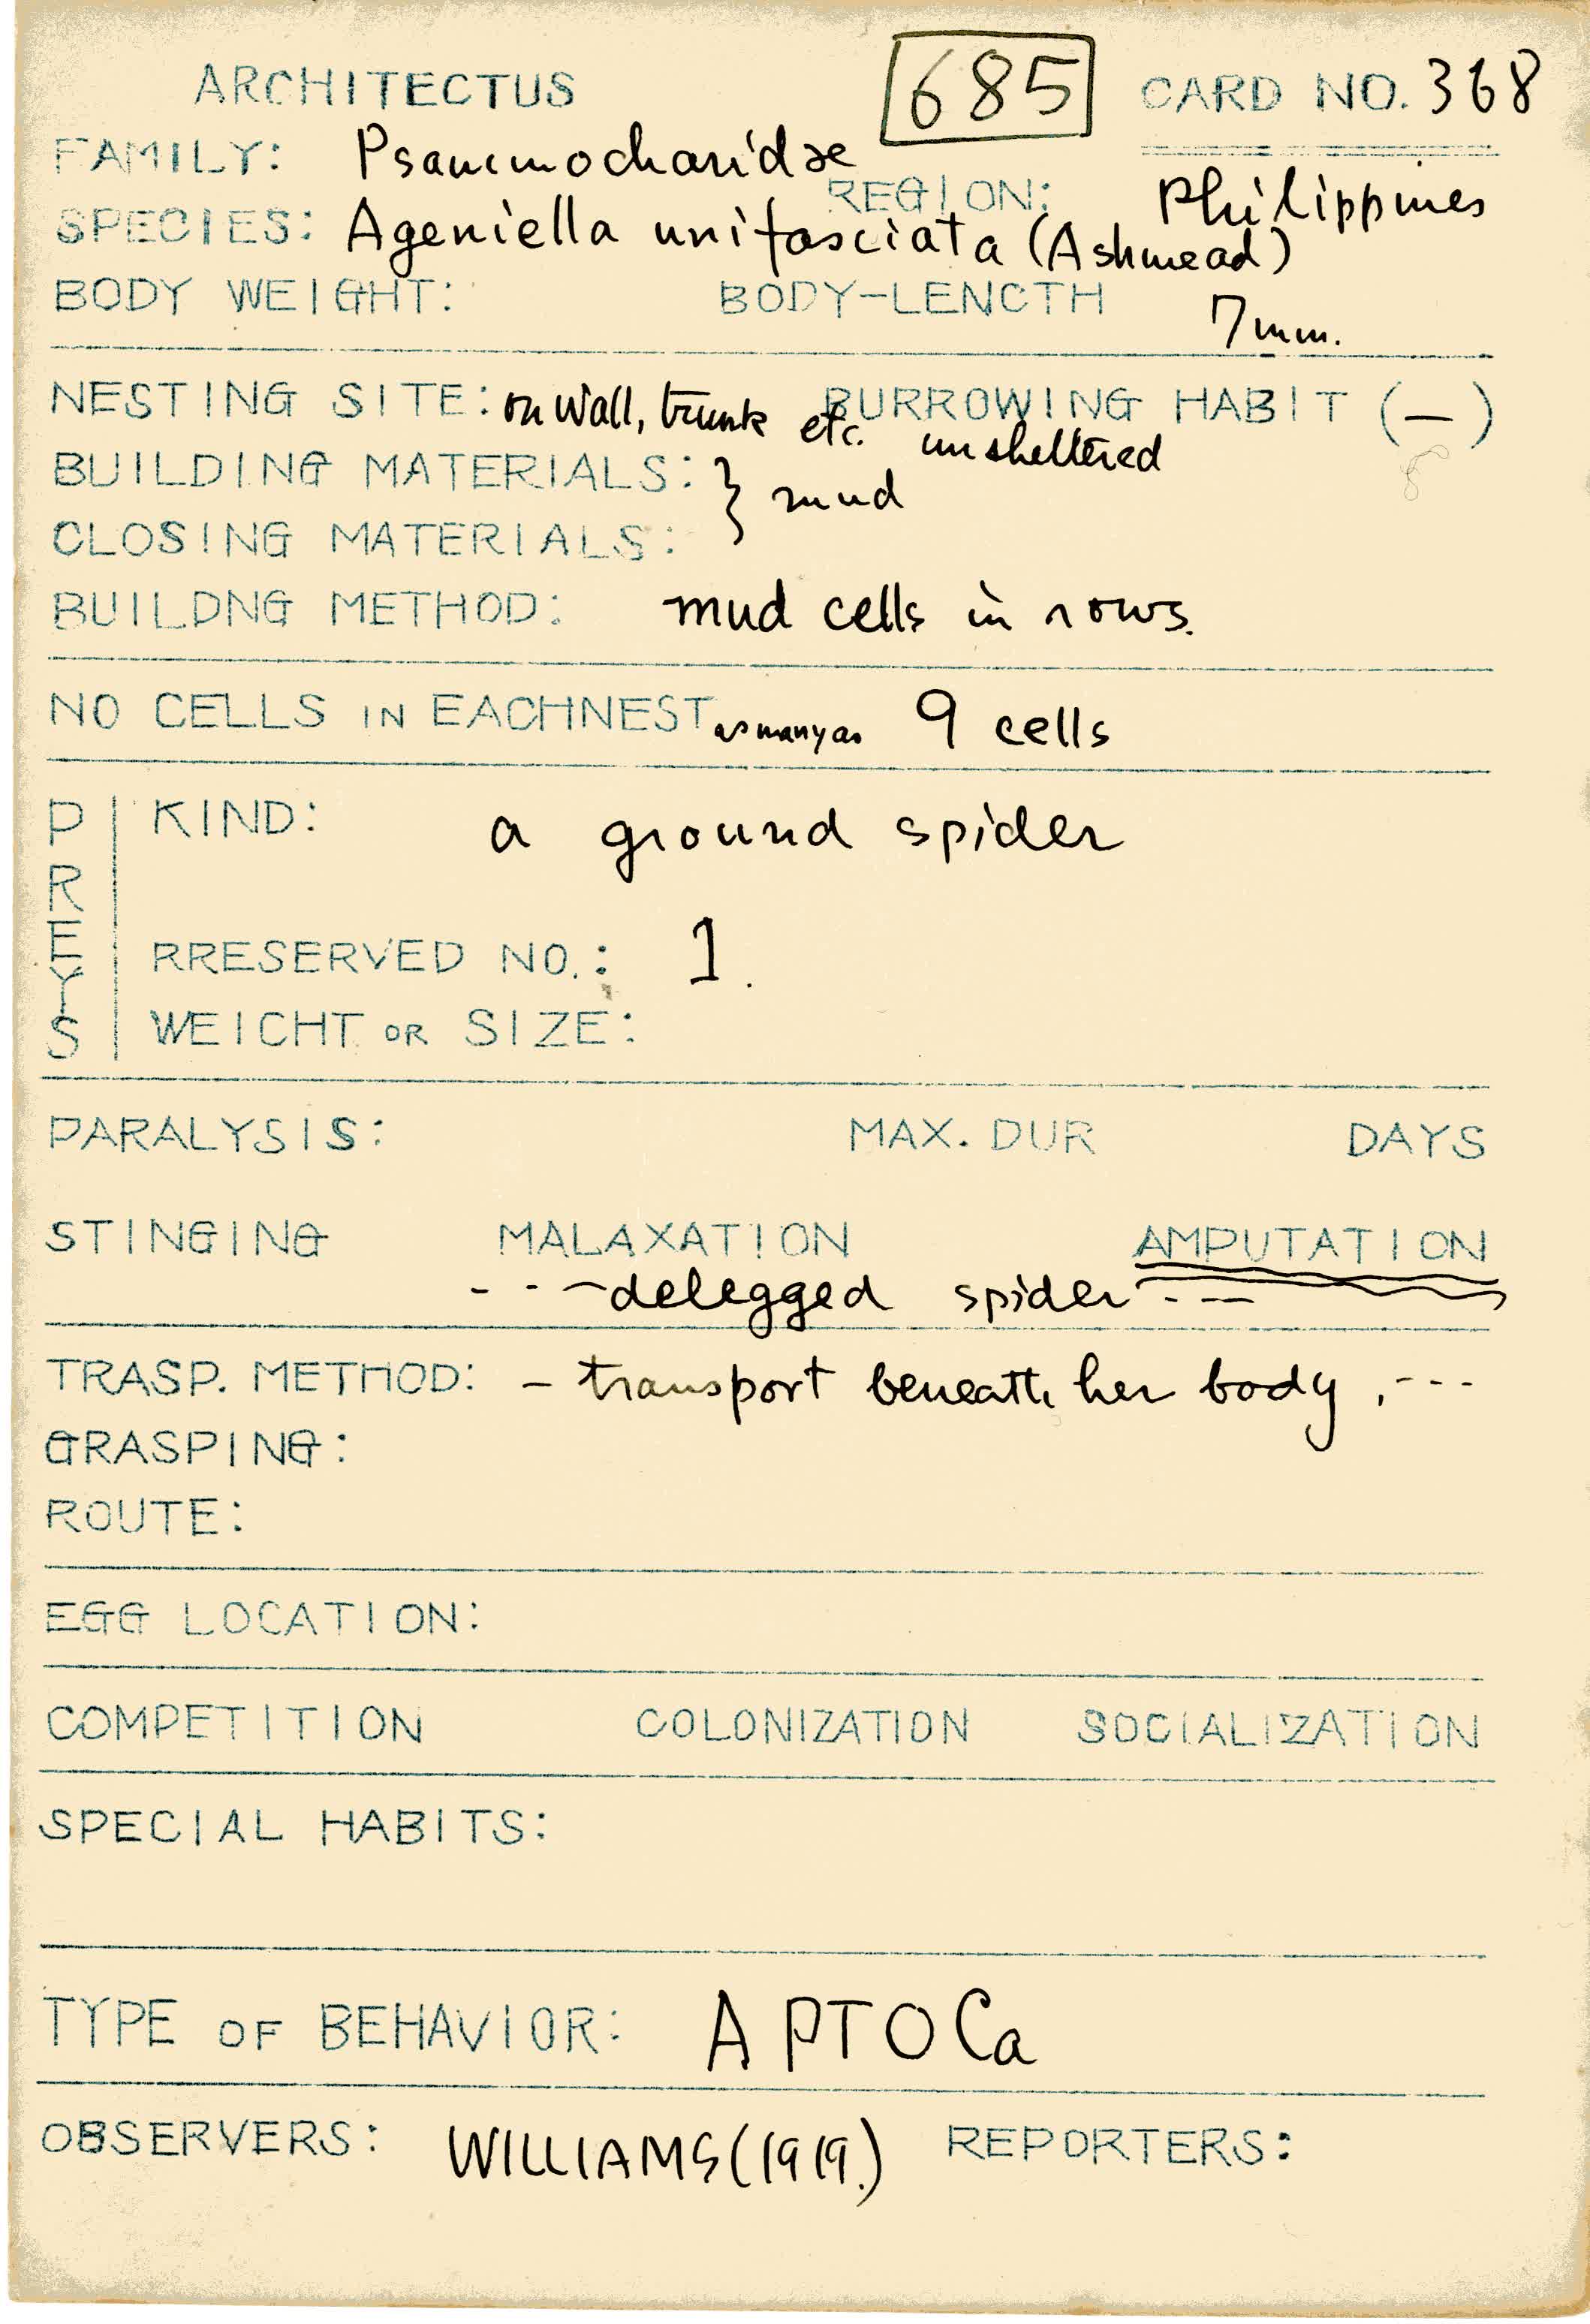 ARCHITECTUS 685 CARD NO. 368
FAMILY: Psammocharidae
REGION: Philippines
SPECIES: Ageniella unifasciata (Ashmead)
BODY WEIGHT: BODY-LENGTH 7mm.
NESTING SITE: on wall, trunk etc. unsheltered BURROWING HABIT (—)
BUILDING MATERIALS: } mud
CLOSING MATERIALS:
BUILDNG METHOD: mud cells in rows.
NO CELLS IN EACHNEST as many as 9 cells
PREYS
KIND: a ground spider
RRESERVED NO.: 1.
WEICHT OR SIZE:
PARALYSIS: MAX. DUR DAYS
STINGING MALAXATION AMPUTATION
---delegged spider---
TRASP. METHOD: – transport beneath her body, ---
GRASPING:
ROUTE:
EGG LOCATION:
COMPETITION COLONIZATION SOCIALIZATION
SPECIAL HABITS:
TYPE OF BEHAVIOR: APTOCa
OBSERVERS: WILLIAMS(1919.) REPORTERS: